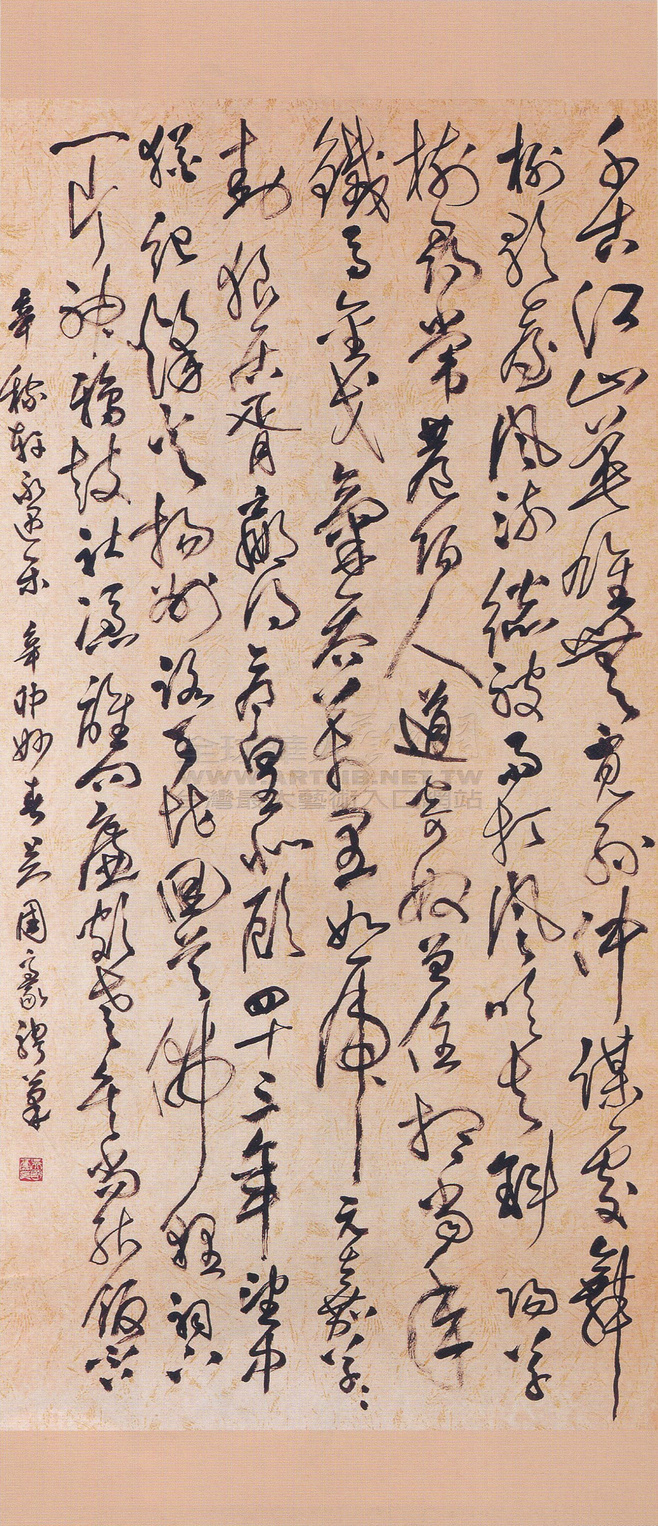 千古江山英雄無覓孫仲謀處舞
榭歌臺風流總被雨打風吹去斜陽草
樹尋常巷陌人道寄奴曾住想當年
鐵馬金戈氣吞萬里如虎元嘉草草
封狼居胥贏得倉皇北顧四十三年望中
猶記烽火揚州路可堪回首佛狸祠下
一片神鴉鼓社憑誰問廉頗老矣尚能飯否
辛稼軒永遇樂 辛卯春吳國豪筆
WWW.ARTLIB.NET.TW
台灣最大藝術入口網站